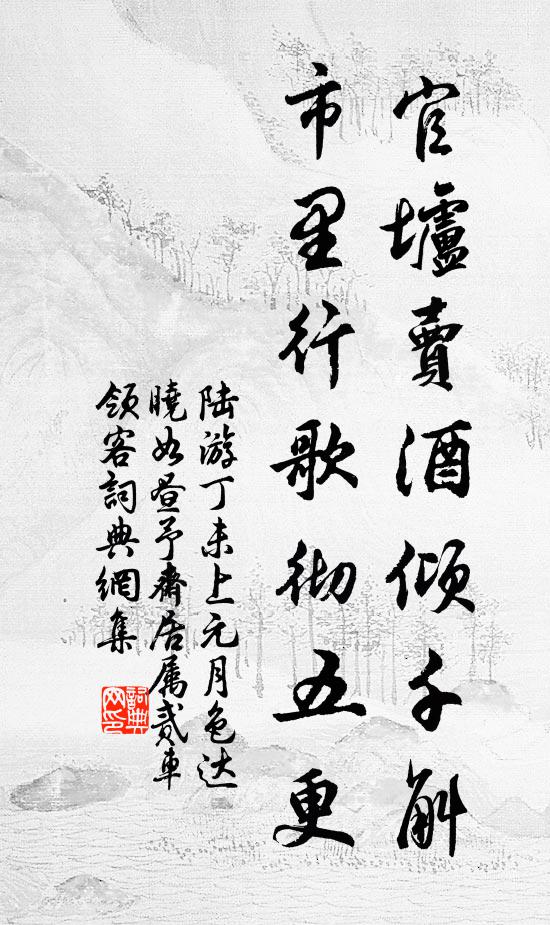 官壚賣酒傾千斛
市里行歌彻五更
陆游丁未上元月色达
曉如晝予齋居属贰車
领客詞典網集
詞典